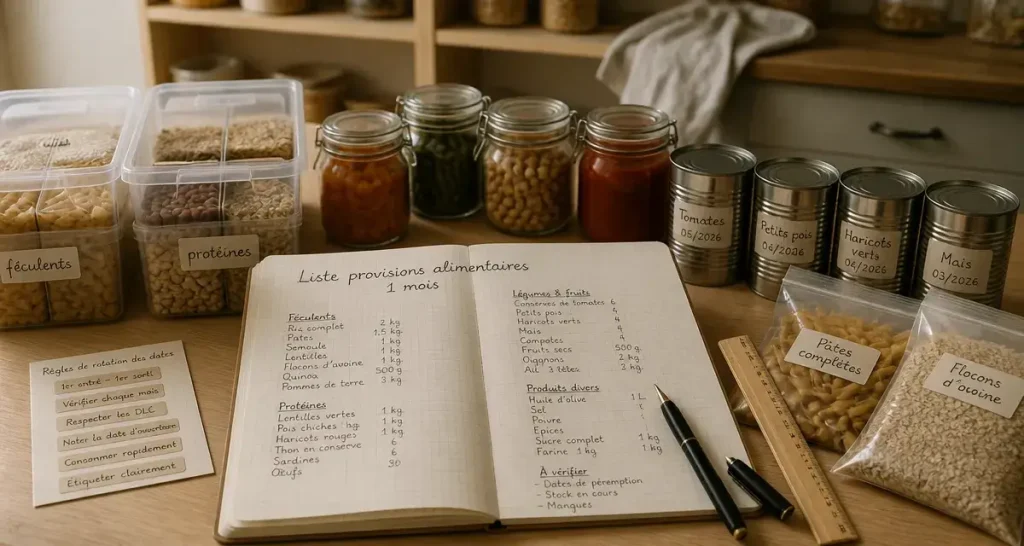 féculents
protéines
Tomates
05/2026
Petits pois
04/2026
Haricots
verts
04/2026
Maïs
03/2026
Règles de rotation des dates
1er entré - 1er sorti
Vérifier chaque mois
Respecter les DLC
Noter la date d'ouverture
Consommer rapidement
Étiqueter clairement
Liste provisions alimentaires
1 mois
Féculents
Riz complet 2 kg
Pates 1.5 kg
Semoule 1 kg
Lentilles 1 kg
Flocons d'avoine 1 kg
Quinoa 500 g
Pommes de terre 3 kg
Protéines
Lentilles vertes 1 kg
Pois chiches 1 kg
Haricots rouges 1 kg
Thon en conserve 6
Sardines 6
Œufs 30
Légumes & fruits
Conserves de tomates 6
Petits pois 4
Haricots verts 4
Mais 4
Compotes 4
Fruits secs 500 g
Oignons 2 kg
Ail 3 têtes 3 kg
Produits divers
Huile d'olive 1 L
Sel
Poivre
Epices
Sucre complet 1 kg
Farine 1 kg 1 kg
À vérifier
- Dates de péremption
- Stock en cours
- Mangues
Pâtes
complètes
Flocons
d'avoine